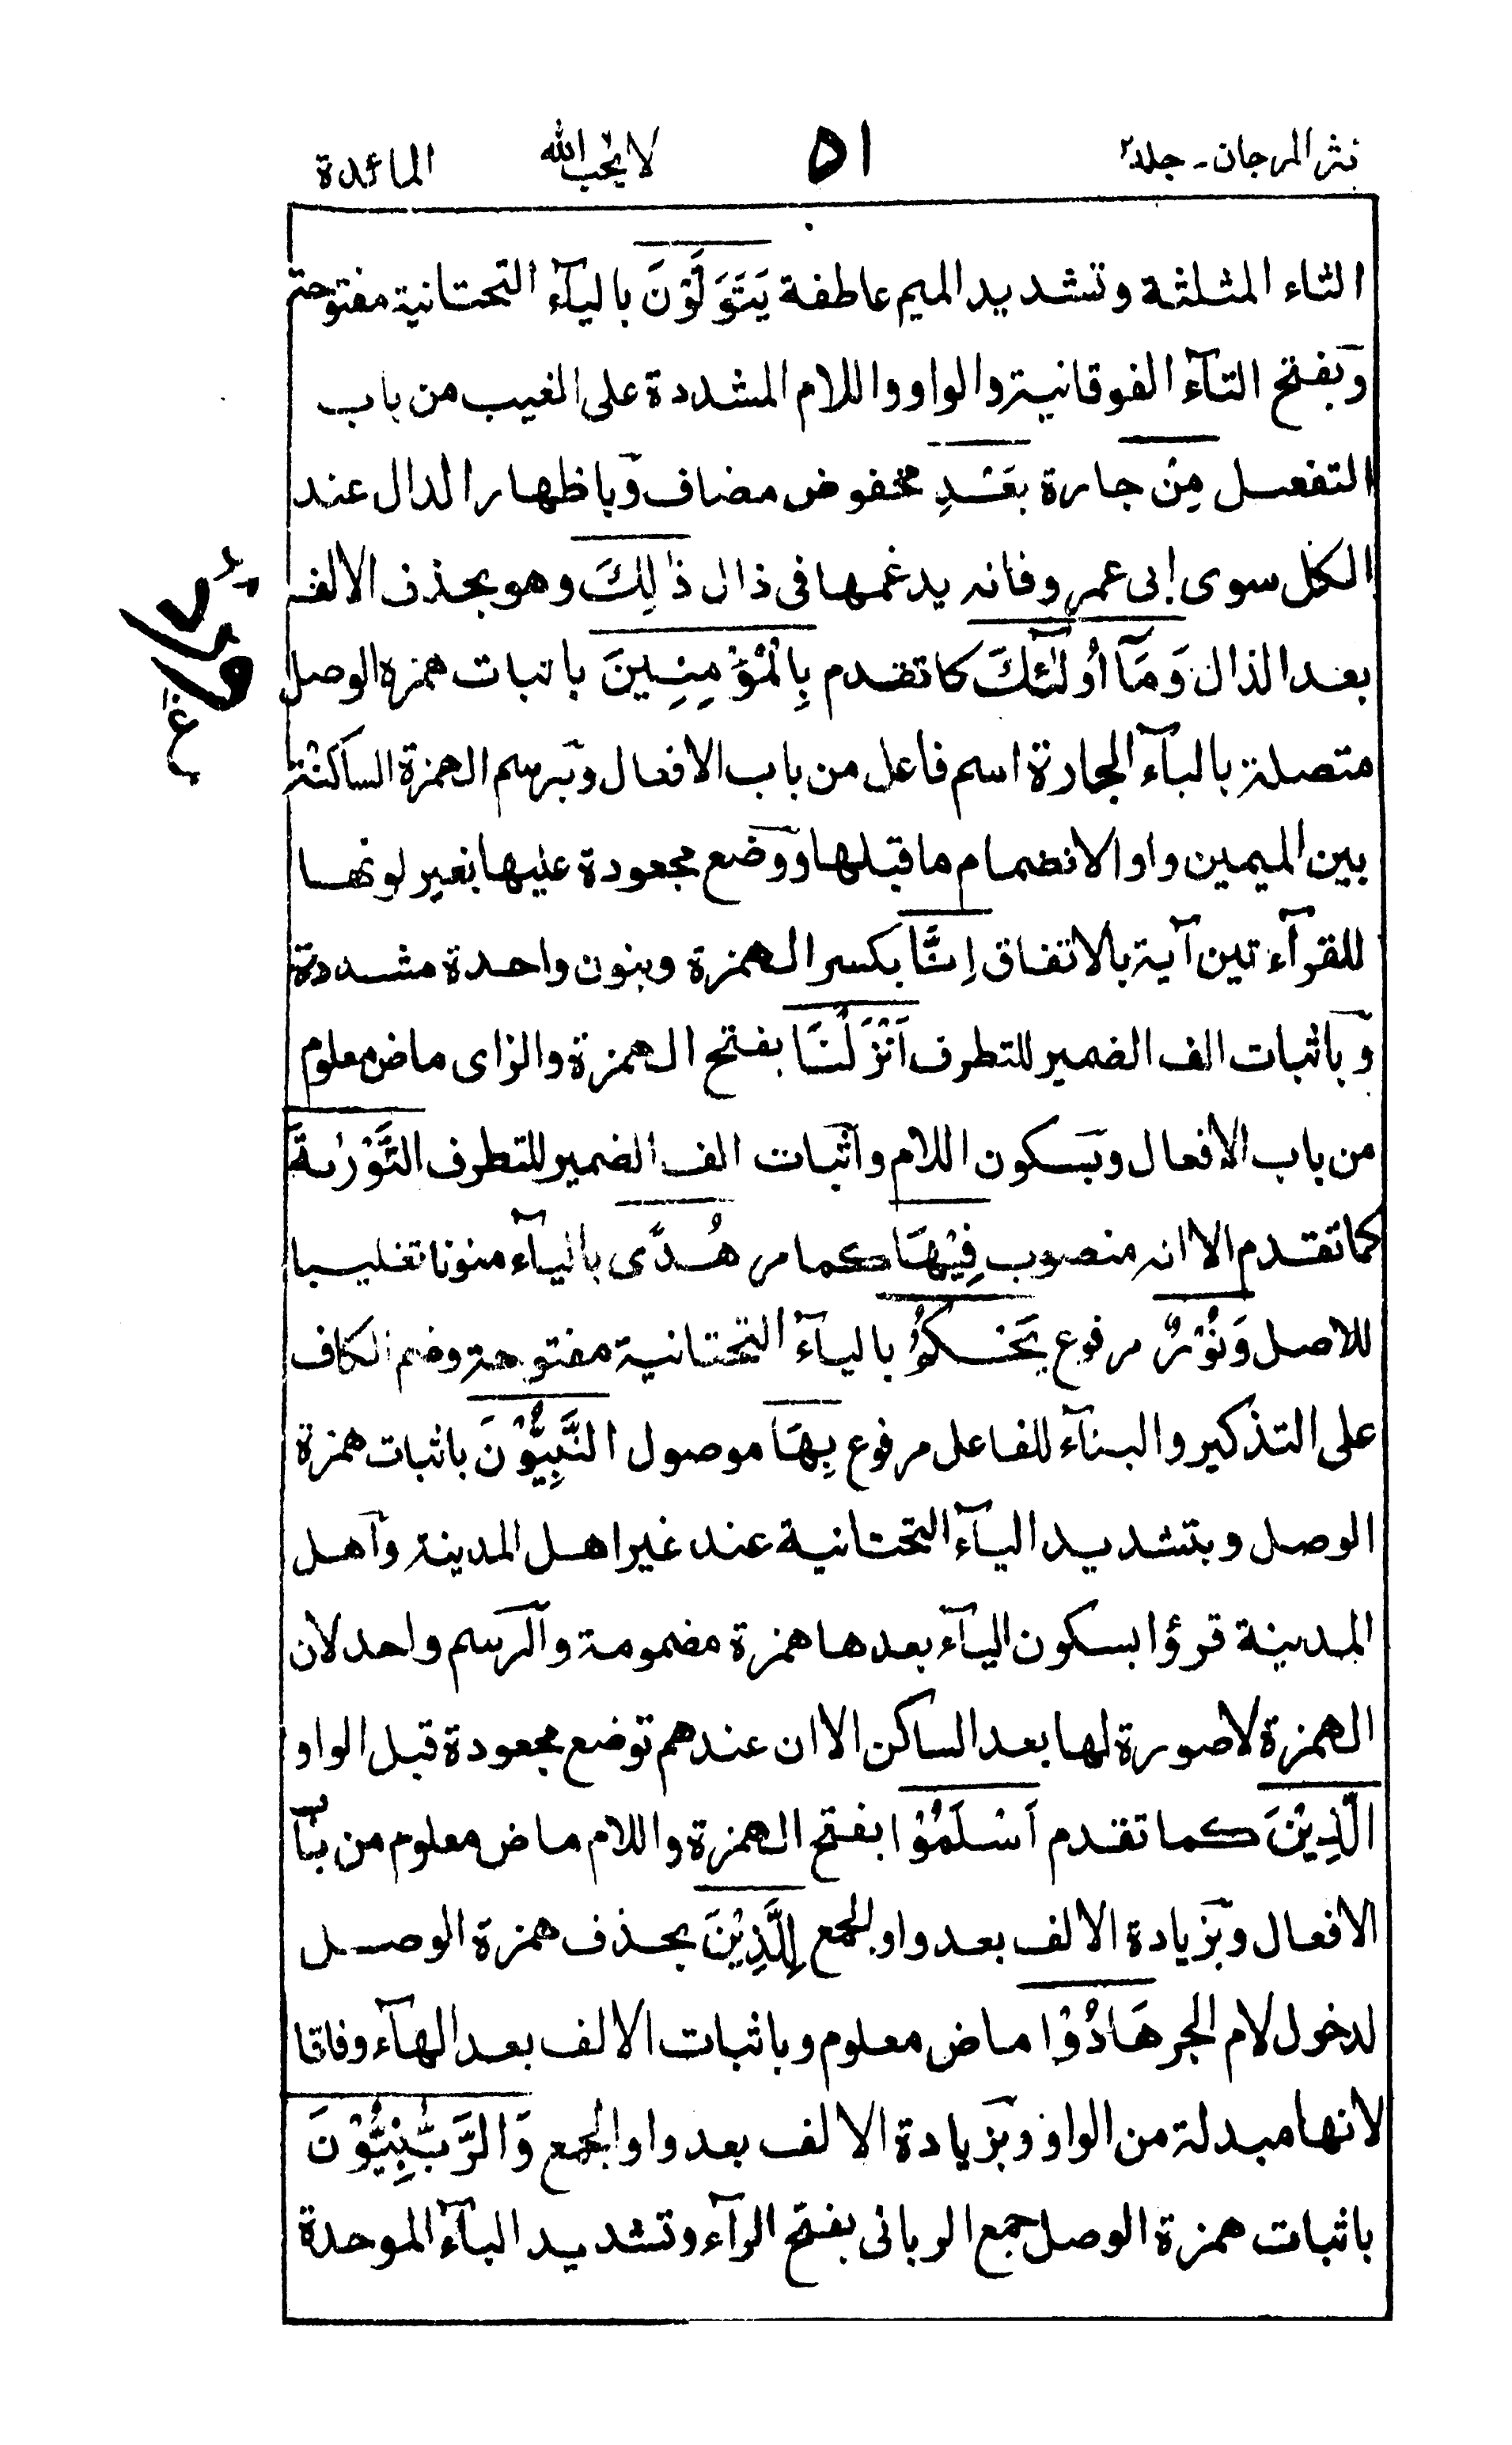 نثر المرجان - جلد ٢ ٥١ لا يحب الله المائدة
الثاء المثلثة وتشديد الميم عاطفة يَتَوَلَّوْنَ بالياء التحتانية مفتوحة
وبفتح التاء الفوقانية والواو واللام المشددة على الغيب من باب
التفعل مِنْ جارة بَعْدِ مخفوض مضاف وباظهار الدال عند
الكل سوى ابى عمرو فانه يدغمها فى ذال ذٰلِكَ وهو بحذف الالف
بعد الذال وَمَآ اُولٰٓئِكَ كما تقدم بِالْمُؤْمِنِينَ باثبات همزة الوصل
متصلة بالباء الجارة اسم فاعل من باب الافعال وبرسم الهمزة الساكنة
بين الميمين واوا لانضمام ما قبلها ووضع مجعودة عليها بغير لونها
للقراءتين آية بالاتفاق اِنَّا بكسر الهمزة وبنون واحدة مشددة
وباثبات الف الضمير للتطرف اَنْزَلْنَا بفتح الهمزة والزاى ماض معلوم
من باب الافعال وبسكون اللام واثبات الف الضمير للتطرف التَّوْرٰىةَ
كما تقدم الا انه منصوب فِيْهَا كما مر هُدًى بالياء منونا تغليبا
للاصل وَنُوْرٌ مرفوع يَحْكُمُ بالياء التحتانية مفتوحة وضم الكاف
على التذكير والبناء للفاعل مرفوع بِهَا موصول النَّبِيُّوْنَ باثبات همزة
الوصل وبتشديد الياء التحتانية عند غير اهل المدينة واهل
المدينة قرؤا بسكون الياء بعدها همزة مضمومة والرسم واحد لان
الهمزة لا صورة لها بعد الساكن الا ان عندهم توضع مجعودة قبل الواو
الَّذِيْنَ كما تقدم اَسْلَمُوْا بفتح الهمزة واللام ماض معلوم من باب
الافعال وبزيادة الالف بعد واو الجمع لِلَّذِيْنَ بحذف همزة الوصل
لدخول لام الجر هَادُوْا ماض معلوم وباثبات الالف بعد الهاء وفاقا
لانها مبدلة من الواو وبزيادة الالف بعد واو الجمع وَالرَّبّٰنِيُّوْنَ
باثبات همزة الوصل جمع الربانى بفتح الراء وتشديد الباء الموحدة